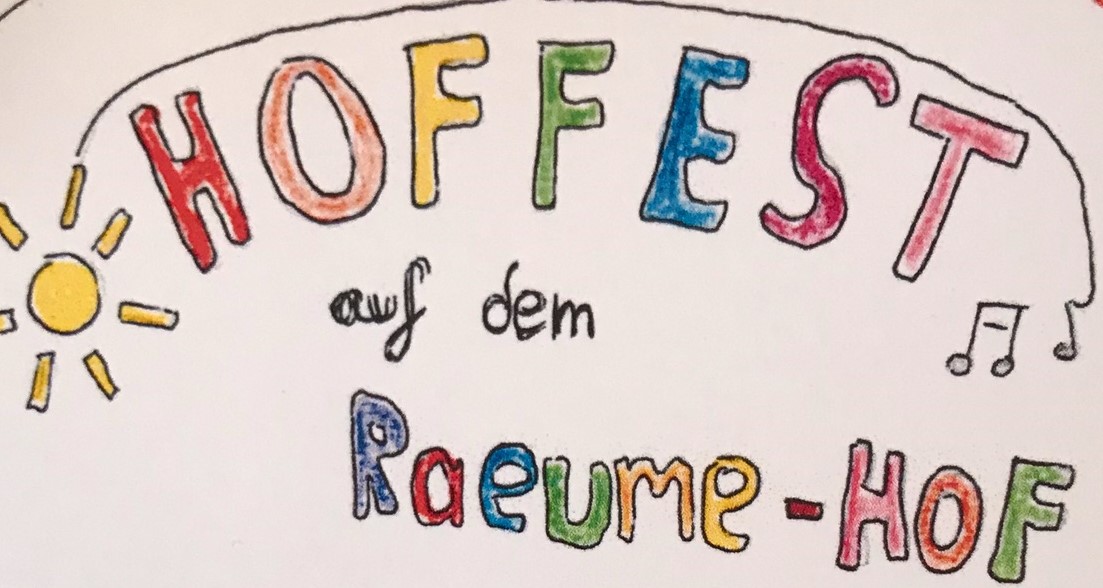 HOFFEST
auf dem
Raeume-HOF